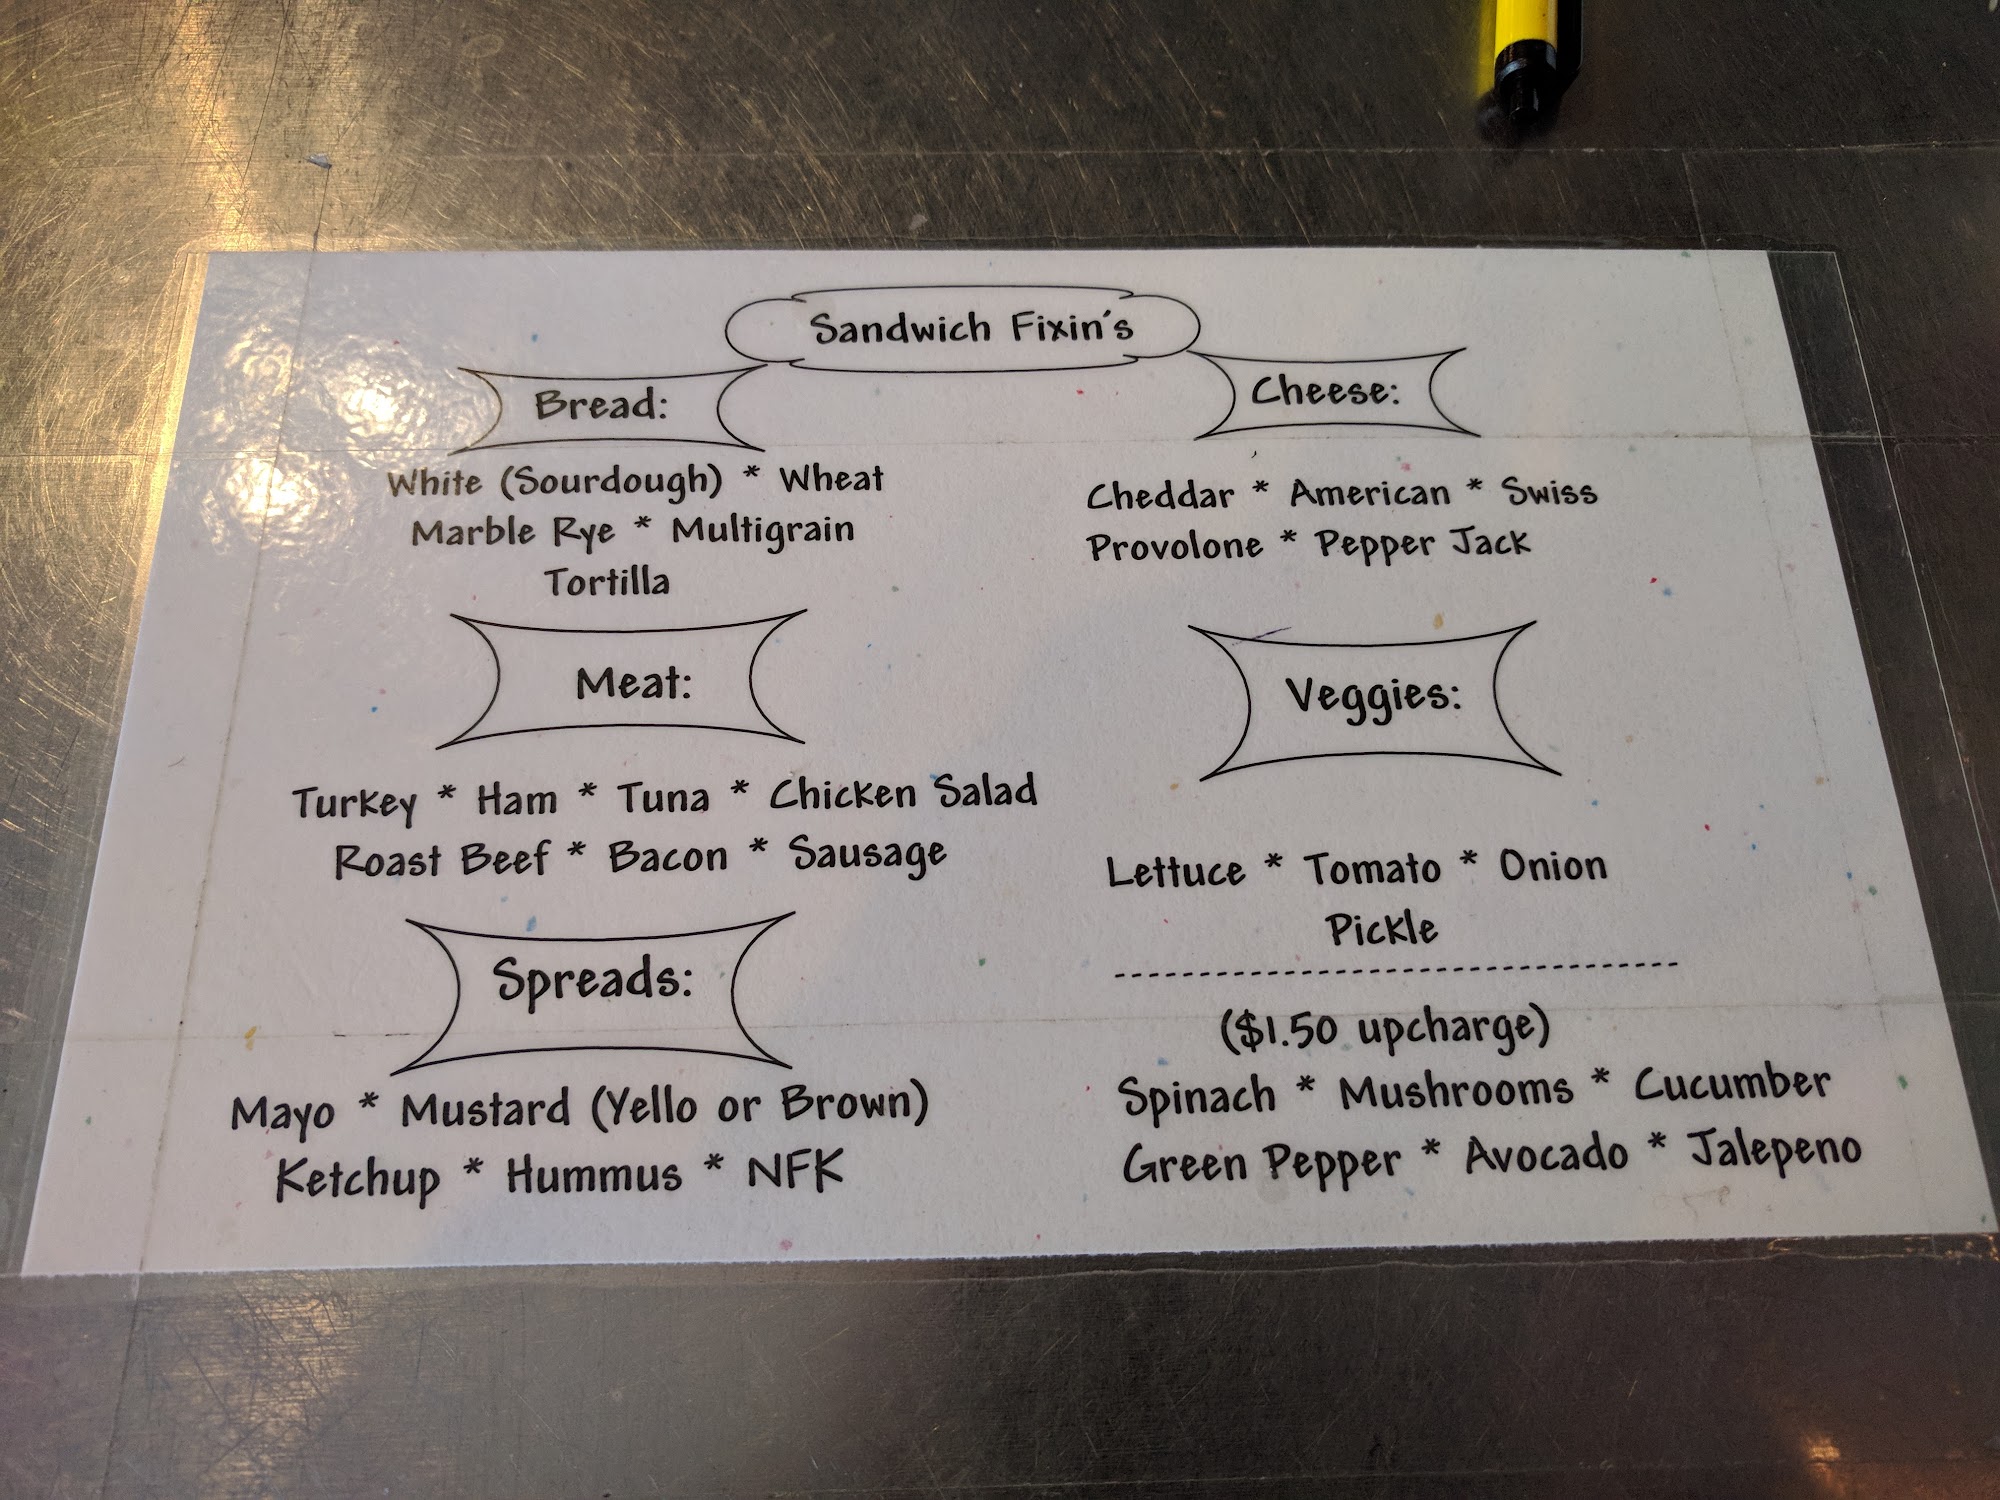 Sandwich Fixin's
Bread:
White (Sourdough) * Wheat
Marble Rye * Multigrain
Tortilla
Cheese:
Cheddar * American * Swiss
Provolone * Pepper Jack
Meat:
Turkey * Ham * Tuna * Chicken Salad
Roast Beef * Bacon * Sausage
Veggies:
Lettuce * Tomato * Onion
Pickle
---------------------------------
($1.50 upcharge)
Spinach * Mushrooms * Cucumber
Green Pepper * Avocado * Jalepeno
Spreads:
Mayo * Mustard (Yello or Brown)
Ketchup * Hummus * NFK